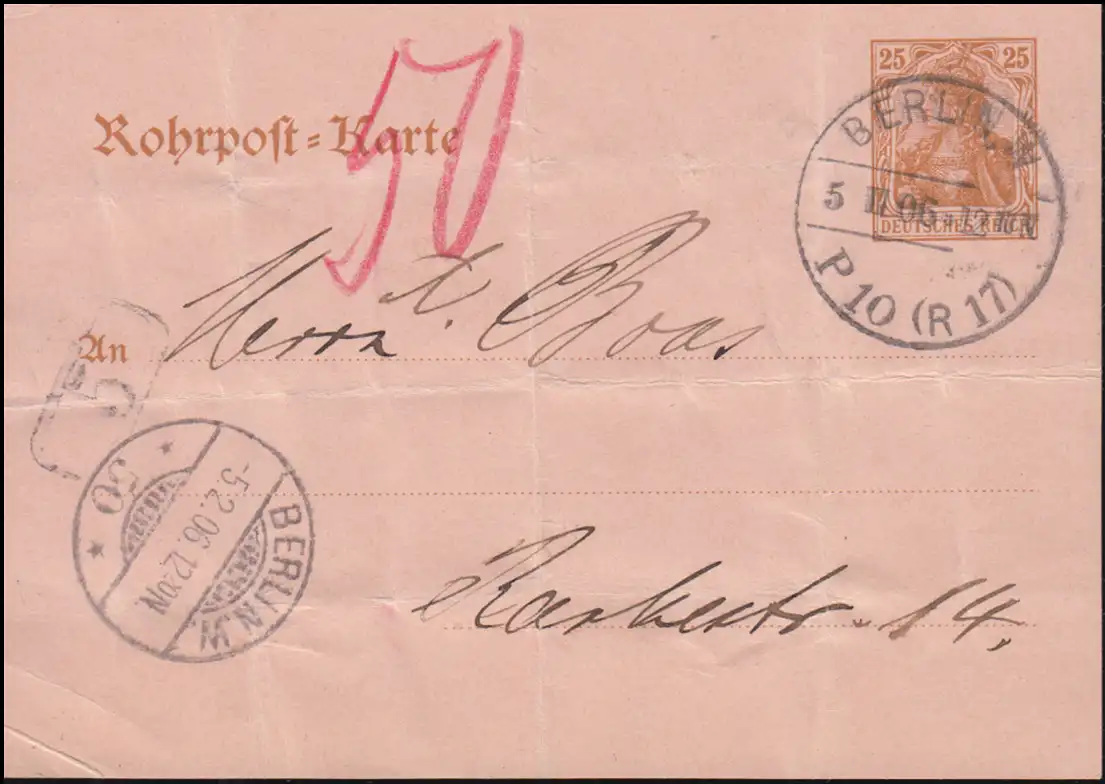 25 25
DEUTSCHES REICH
Rohrpost=Karte
50
BERLIN, W
5 II 06 12 10 N
P 10 (R 17)
An Herrn A. Boas
5
BERLIN N.W.
-5.2.06.12 20N.
* 50 *
14.